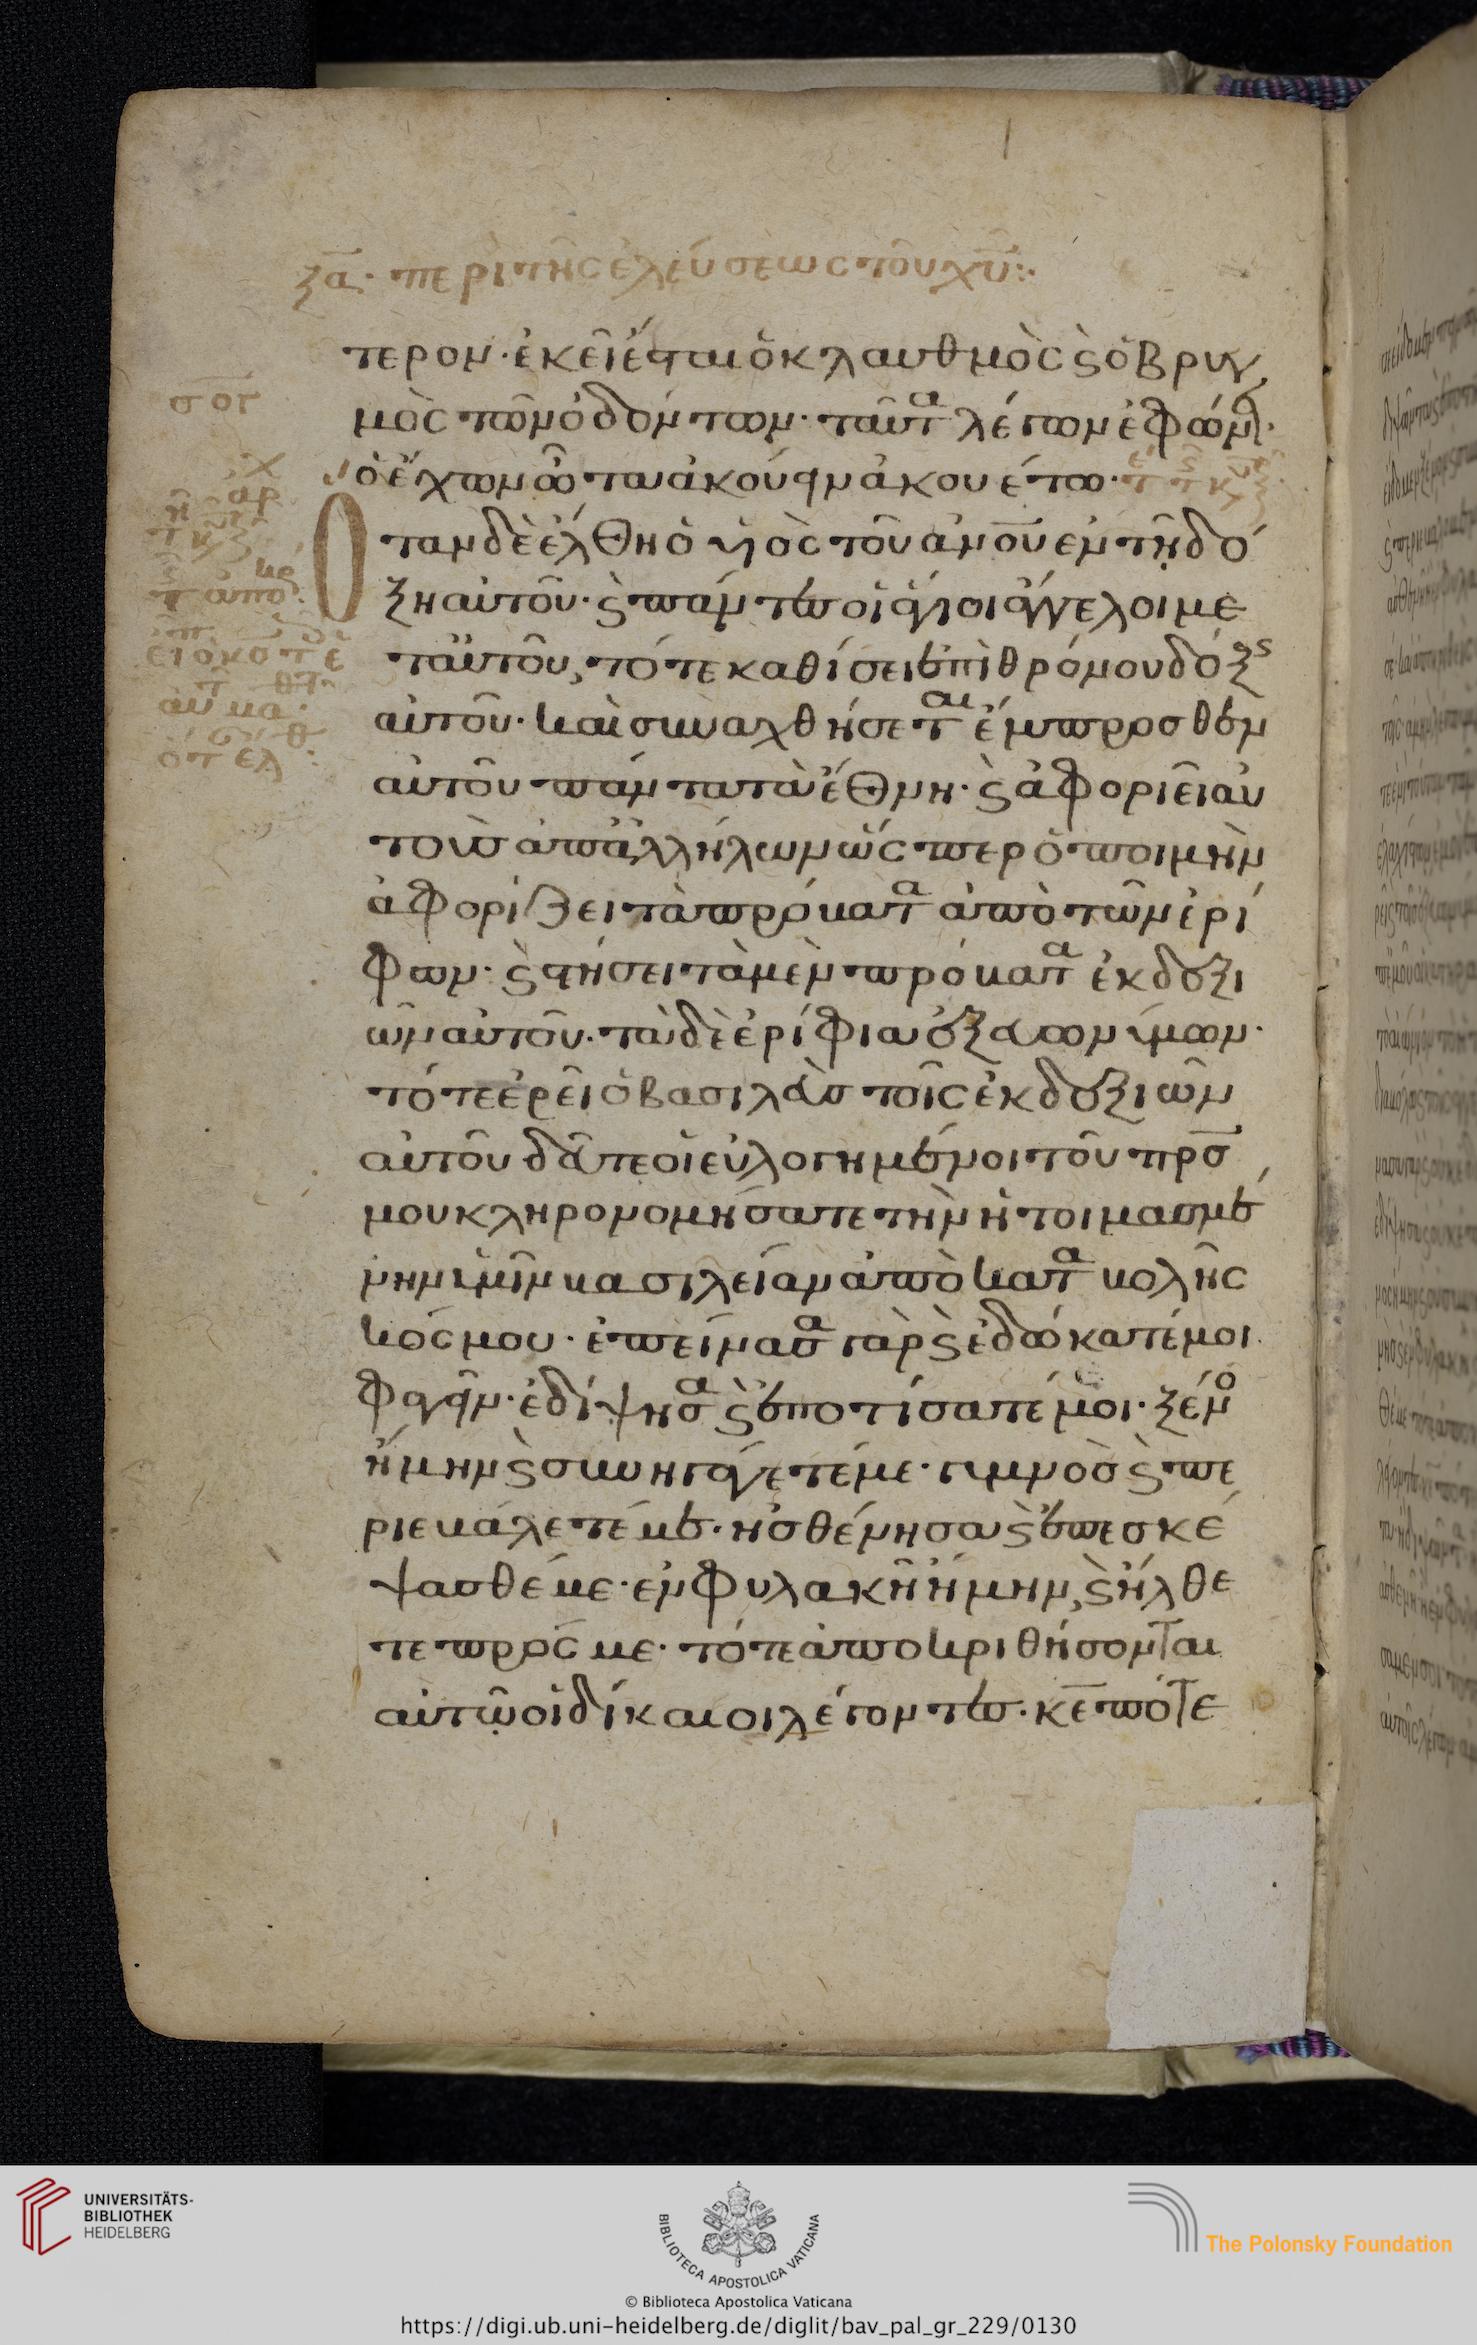 ξα· περὶ τῆς ἐλεύσεως τοῦ χυ:·
τερον· ἐκεῖ ἔσται ὁ κλαυθμὸς ϗ ὁ βρυγ
μὸς τῶν ὀδόντων· ταῦτα λέγων ἐφών·
ὁ ἔχων ὦτα ἀκούειν ἀκουέτω·
Ὅταν δὲ ἔλθη ὁ υἱὸς τοῦ ανου ἐν τῇ δό
ξη αὐτοῦ· ϗ πάντες οἱ ἅγιοι ἄγγελοι με
τ' αὐτοῦ, τότε καθίσει ἐπὶ θρόνου δόξς
αὐτοῦ· καὶ συναχθήσεται ἔμπροσθεν
αὐτοῦ πάντα τὰ ἔθνη· ϗ ἀφοριεῖ αὐ
τοὺς ἀπ' ἀλλήλων ὥσπερ ὁ ποιμὴν
ἀφορίζει τὰ πρόβατα ἀπὸ τῶν ἐρί
φων· ϗ στήσει τὰ μὲν πρόβατα ἐκ δεξι
ῶν αὐτοῦ· τὰ δὲ ἐρίφια ἐξ εὐωνύμων·
τότε ἐρεῖ ὁ βασιλεὺς τοῖς ἐκ δεξιῶν
αὐτοῦ δεῦτε οἱ εὐλογημένοι τοῦ πρσ
μου κληρονομήσατε τὴν ἡτοιμασμέ
νην ὑμῖν βασιλείαν ἀπὸ καταβολῆς
κόσμου· ἐπείνασα γὰρ ϗ ἐδώκατέ μοι
φαγεῖν· ἐδίψησα ϗ ἐποτίσατέ μοι· ξένο
ἤμην ϗ συνηγάγετέ με· γυμνὸς ϗ πε
ριεβάλετέ με· ἠσθένησα ϗ ἐπεσκέ
ψασθέ με· ἐν φυλακῆ ἤμην, ϗ ἤλθε
τε πρός με· τότε ἀποκριθήσονται
αὐτῷ οἱ δίκαιοι λέγοντες· κε πότε
UNIVERSITÄTS-
BIBLIOTHEK
HEIDELBERG
BIBLIOTECA APOSTOLICA VATICANA
The Polonsky Foundation
© Biblioteca Apostolica Vaticana
https://digi.ub.uni-heidelberg.de/diglit/bav_pal_gr_229/0130